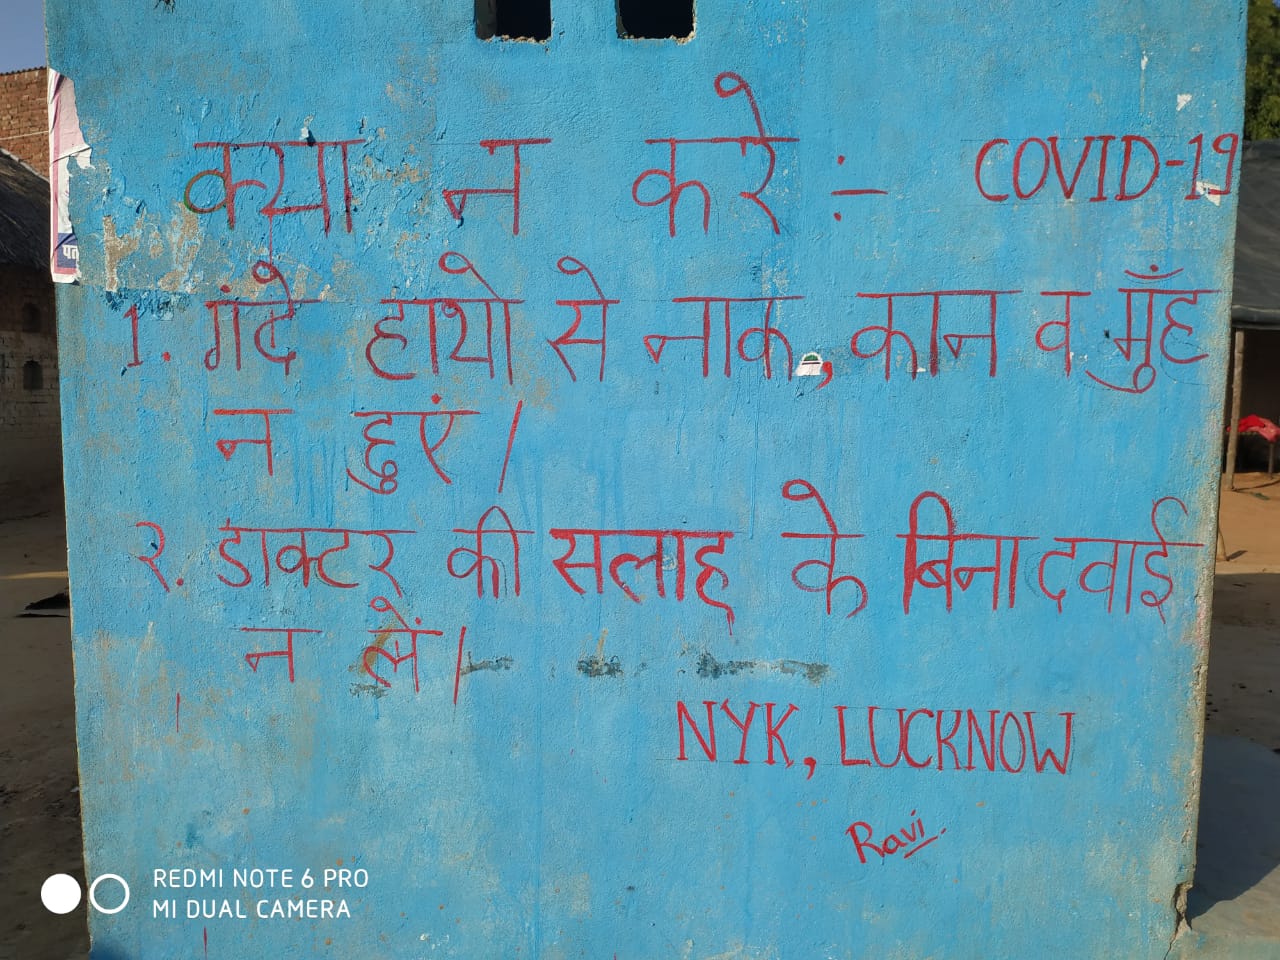 क्या न करे :- COVID-19
1. गंदे हाथो से नाक, कान व मुँह
न छुएं।
२. डाक्टर की सलाह के बिना दवाई
न लें।
NYK, LUCKNOW
Ravi.
REDMI NOTE 6 PRO
MI DUAL CAMERA